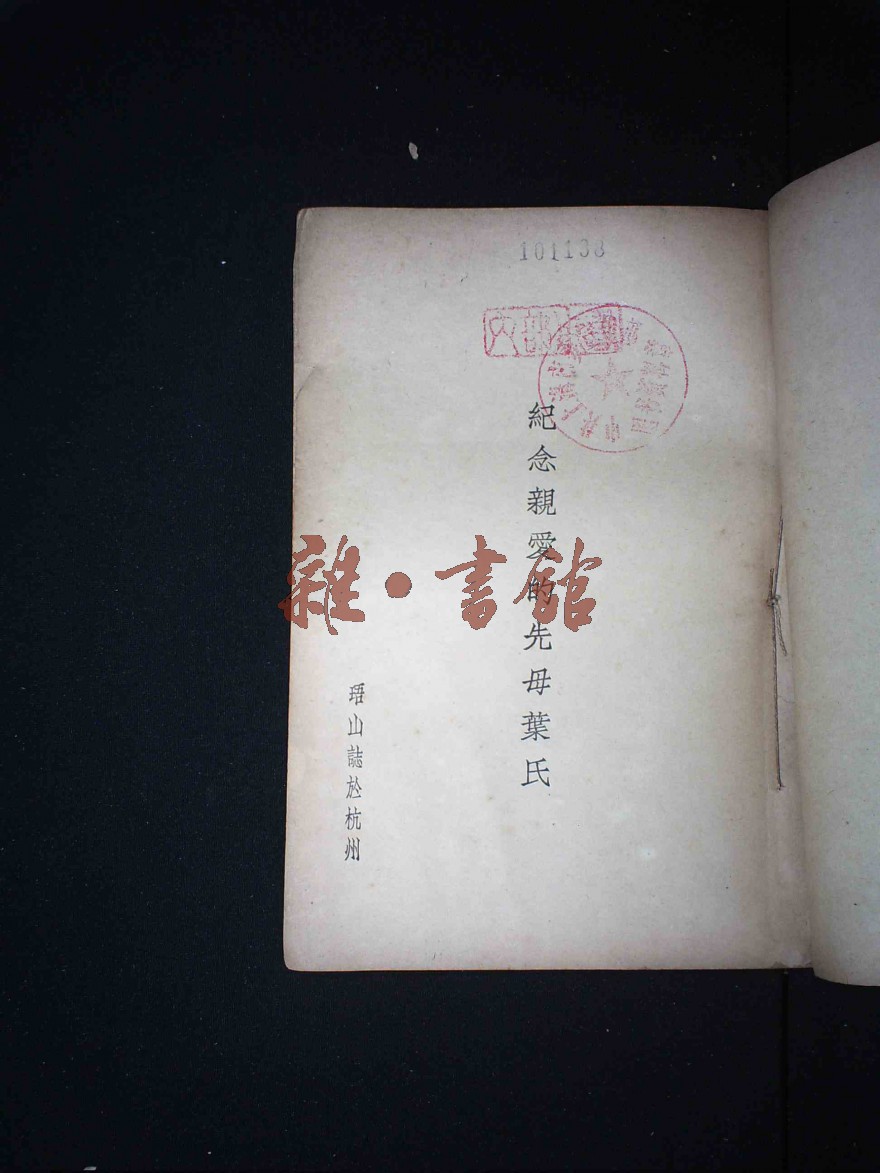 101133
紀念親愛的先母葉氏
珸山誌於杭州
雜·書館